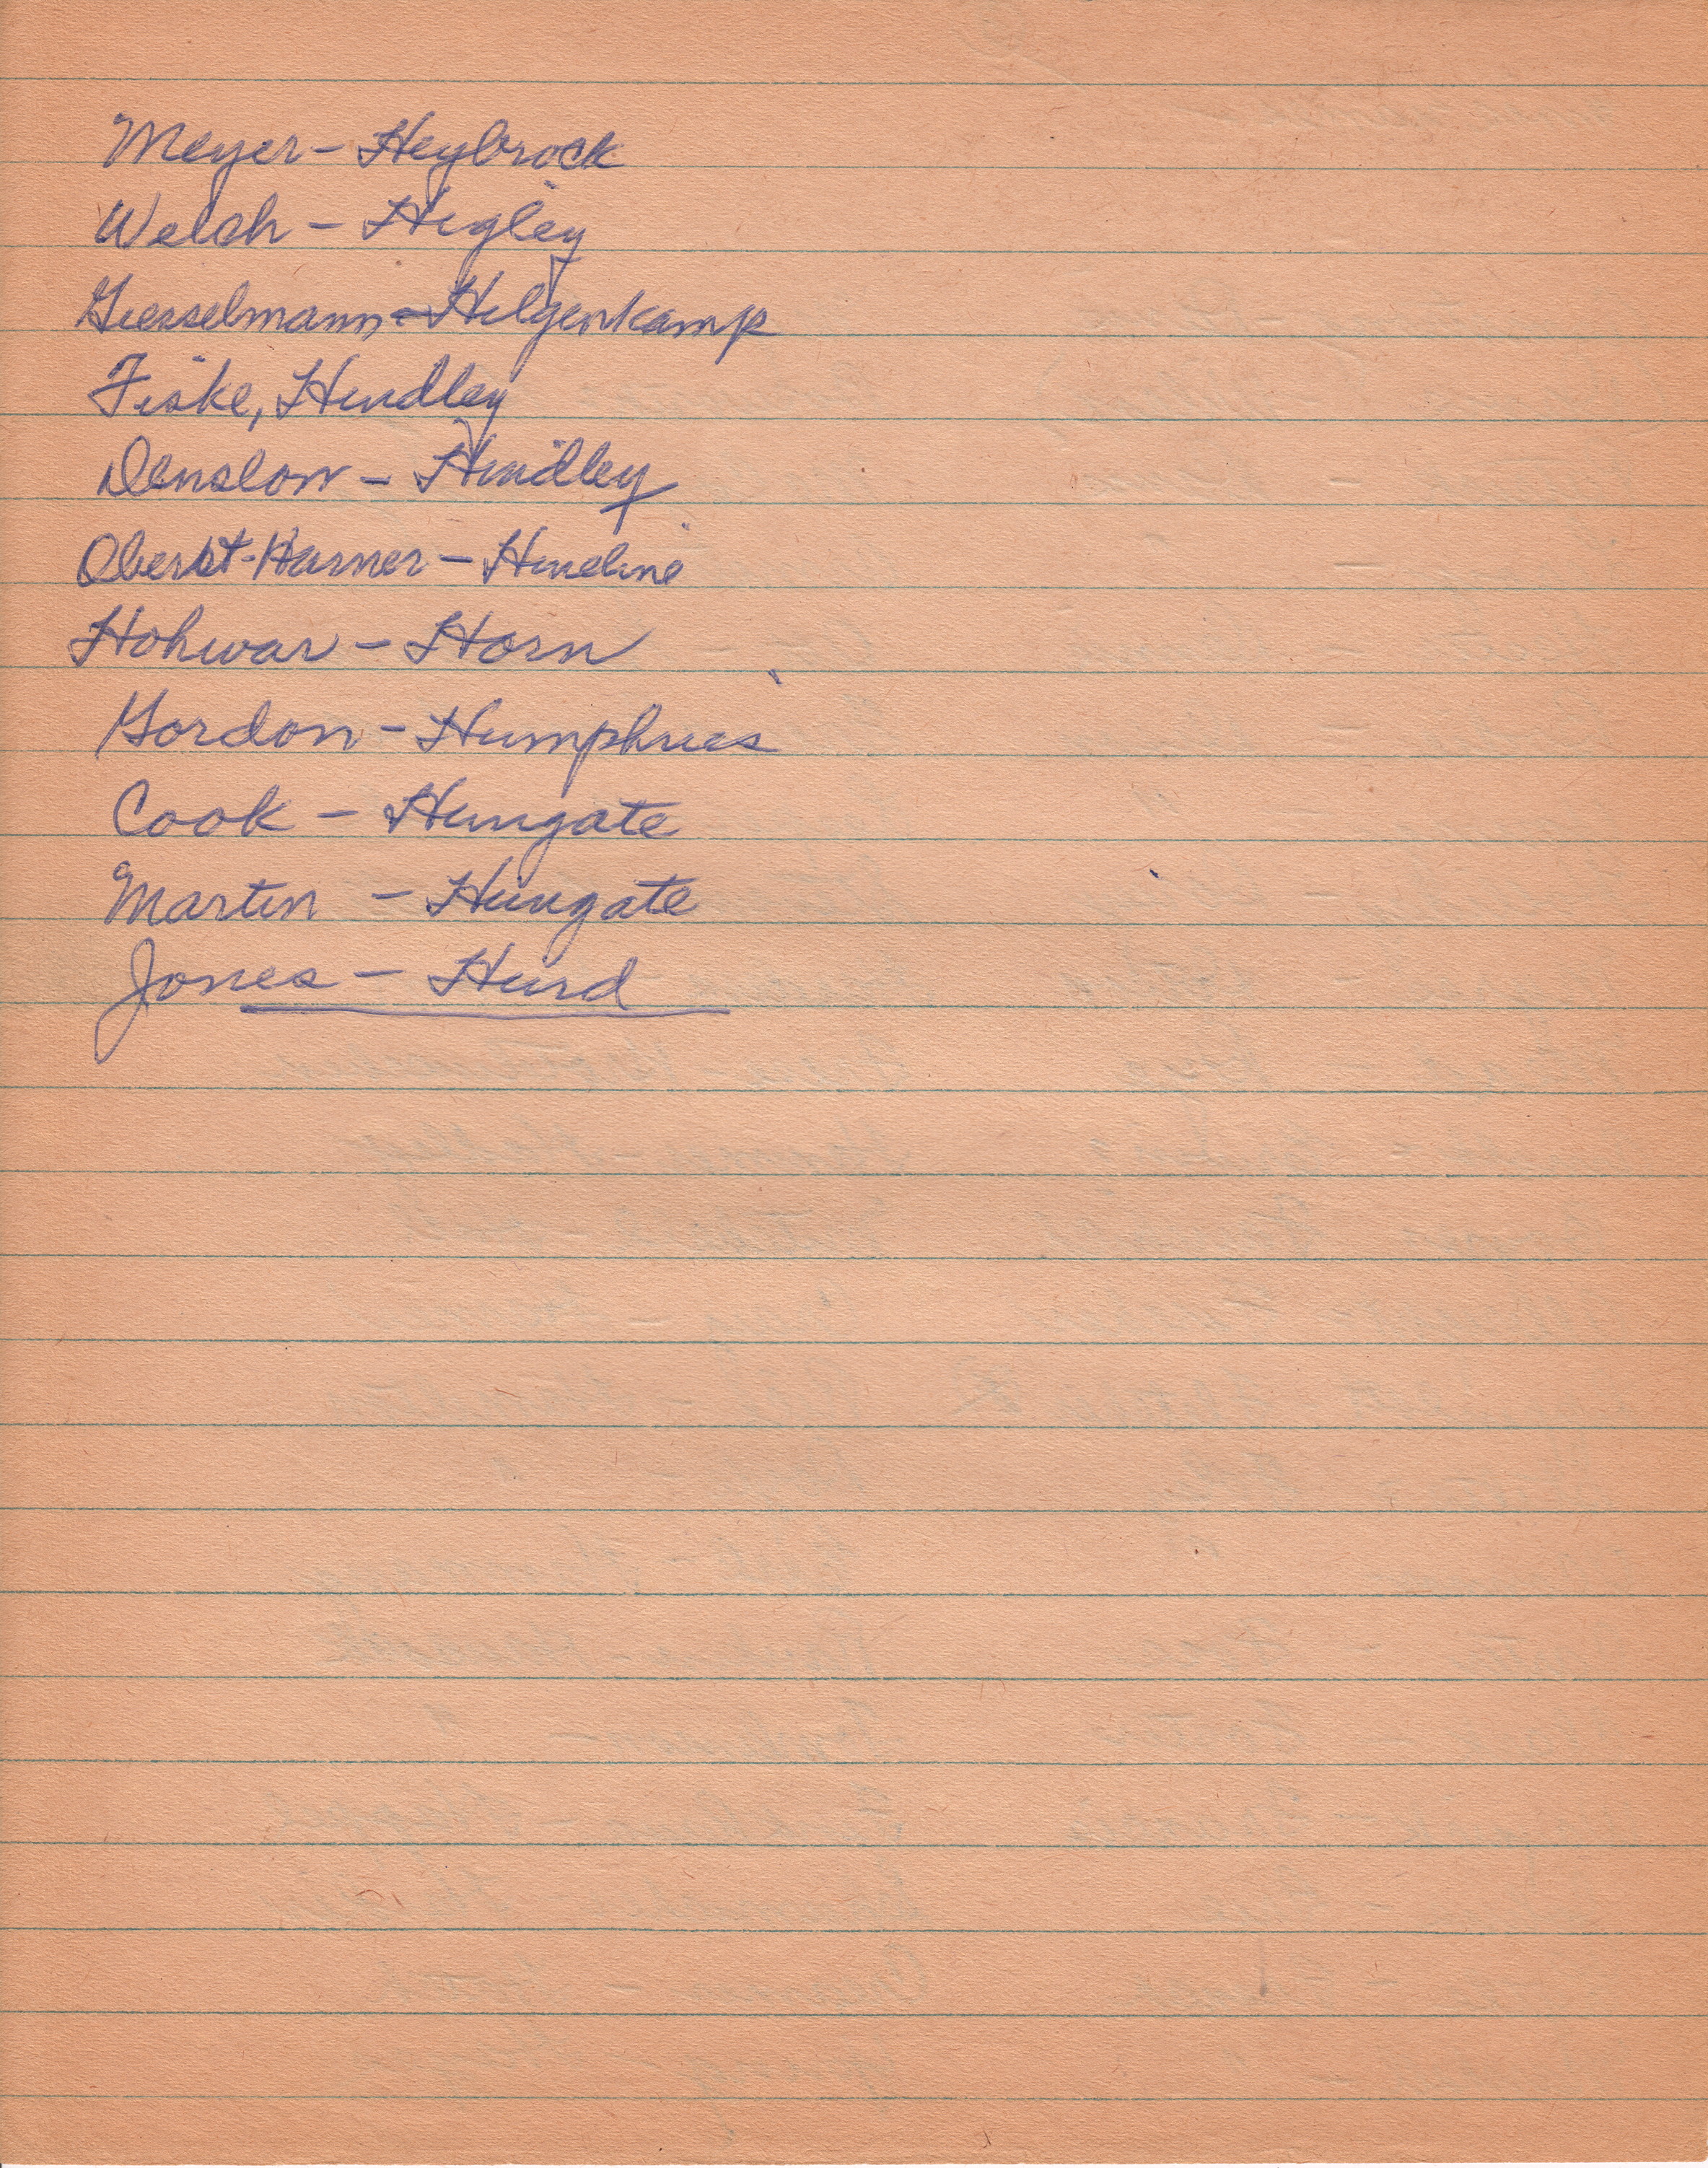 Meyer - Heybrock
Welch - Higley
Giesselmann - Hilgenkamp
Fiske, Hindley
Denslow - Hindley
Oberst-Harner - Hineline
Hohwar - Horn
Gordon - Humphries
Cook - Hungate
Martin - Hungate
Jones - Hurd